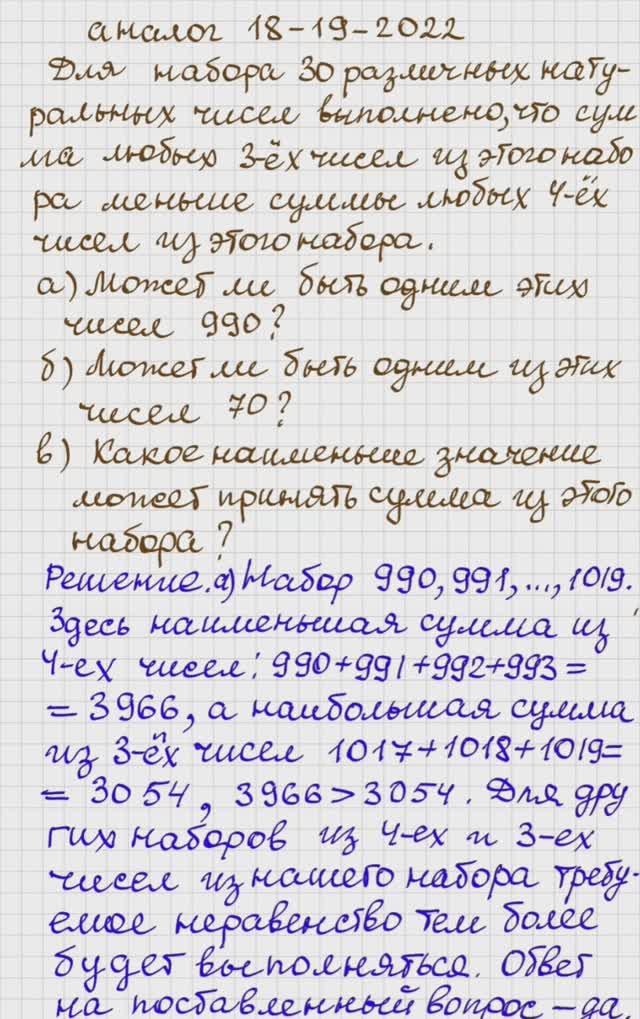 аналог 18-19-2022
Для набора 30 различных нату-
ральных чисел выполнено, что сум
ма любых 3-ёх чисел из этого набо
ра меньше суммы любых 4-ёх
чисел из этого набора.
а) Может ли быть одним этих
чисел 990?
б) Может ли быть одним из этих
чисел 70?
в) Какое наименьше значение
может принять сумма из этого
набора?
Решение. а) Набор 990, 991, ..., 1019.
Здесь наименьшая сумма из
4-ех чисел: 990+991+992+993=
= 3966, а наибольшая сумма
из 3-ёх чисел 1017+1018+1019=
= 3054, 3966>3054. Для дру
гих наборов из 4-ех и 3-ех
чисел из нашего набора требу-
емое неравенство тем более
будет выполняться. Ответ
на поставленный вопрос – да.